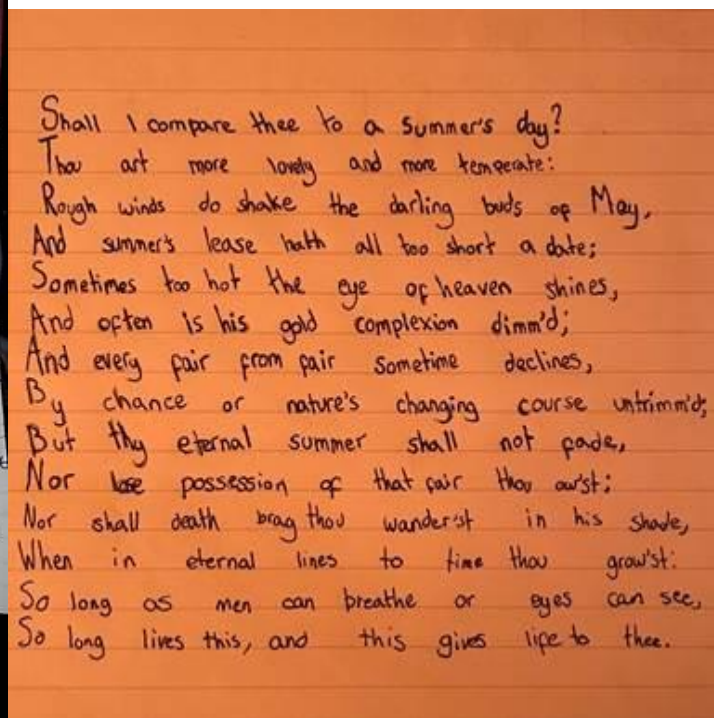 Shall I compare thee to a summer's day?
Thou art more lovely and more temperate:
Rough winds do shake the darling buds of May,
And summer's lease hath all too short a date;
Sometimes too hot the eye of heaven shines,
And often is his gold complexion dimm'd;
And every fair from fair sometime declines,
By chance or nature's changing course untrimm'd;
But thy eternal summer shall not fade,
Nor lose possession of that fair thou ow'st;
Nor shall death brag thou wander'st in his shade,
When in eternal lines to time thou grow'st:
So long as men can breathe or eyes can see,
So long lives this, and this gives life to thee.